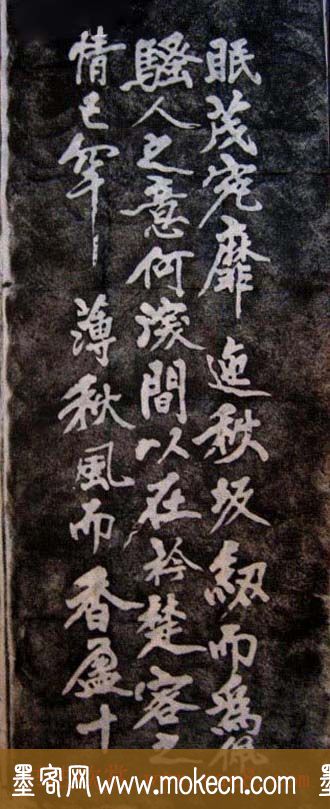 眠茂宛靡迤秋坂紉而為佩
騷人之意何深間以在衿楚客之
情已罕薄秋風而香盈十
墨客网 www.mokecn.com